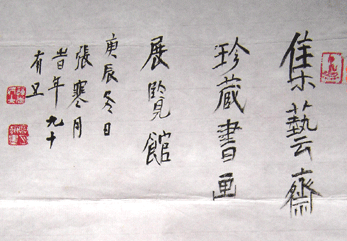 集藝齋
珍藏書画
展覽館
庚辰冬日
張寒月
时年九十
有五